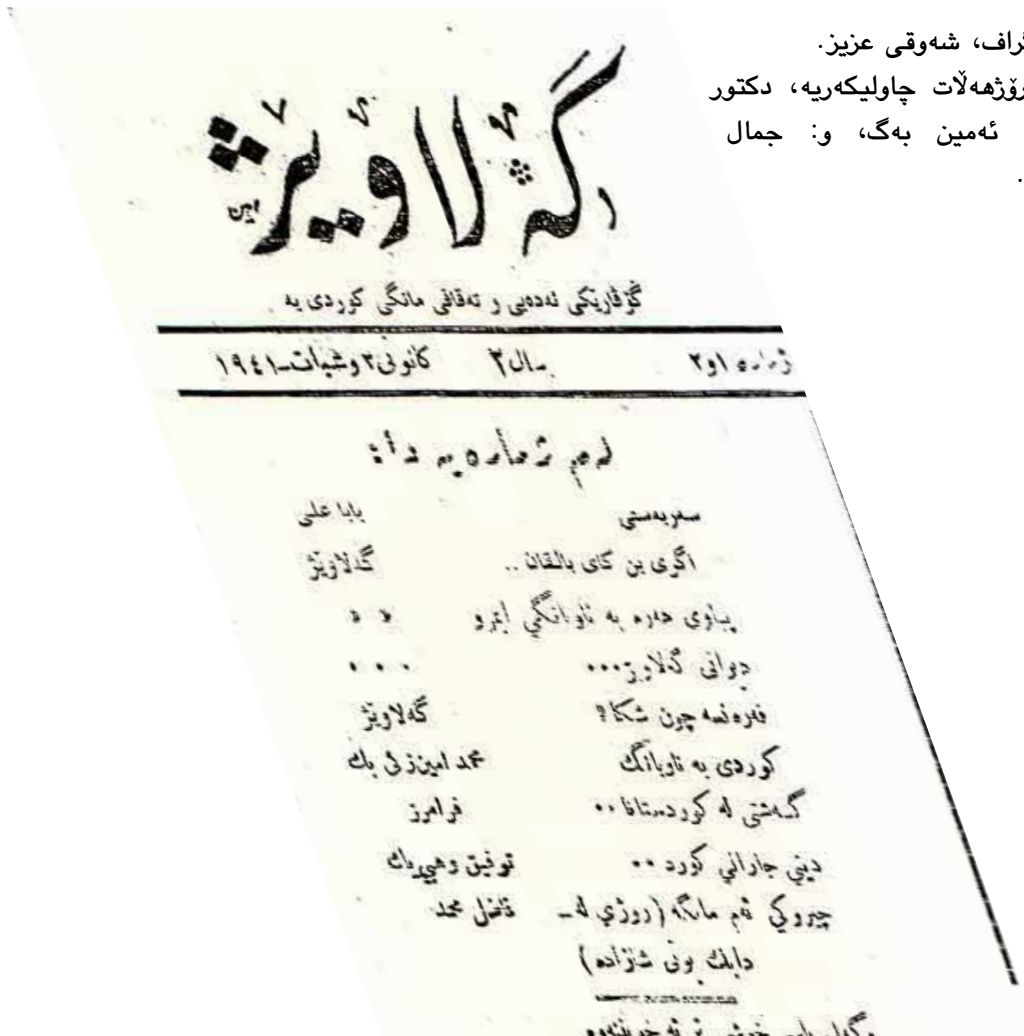 گراف، شەوقی عزیز.
رۆژهەڵات چاولیکەریە، دکتور
ئەمین بەگ، و: جمال
.
گەلاوێژ
امین
گۆڤارێکی ئەدەبی و ئەقافی مانگی کوردی یە
ژمارە ١و٢ سال ٢ کانونی ٢ وشبات_١٩٤١
لەم ژمارەیە دا:
سەربەستی بابا علی
اگری بن کای بالقان .. گەلاوێژ
پیاوی هەرە بە ناوبانگی » »
دیوانی گەلاوێژ...
فەرەنسە چون شکا؟ گەلاوێژ
کوردی بە ناوبانگ محمد امین زکی بك
گەشتی لە کوردستانا .. فرامرز
دینی جارانی کورد .. توفیق وهبی بك
چیروکی ئەم مانگە (روژی لە_ فاضل محمد
دایك بونی شازادە)